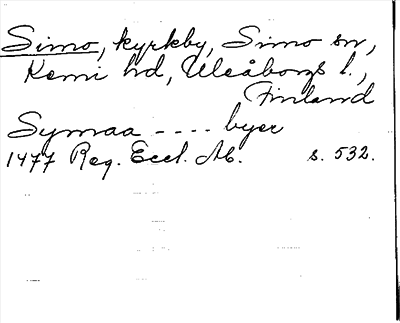 Simo, kyrkby, Simo sn,
Kemi hd, Uleåborgs l.,
Finland
Symaa - - - - byer
1477 Reg. Eccl. Ab. s. 532.